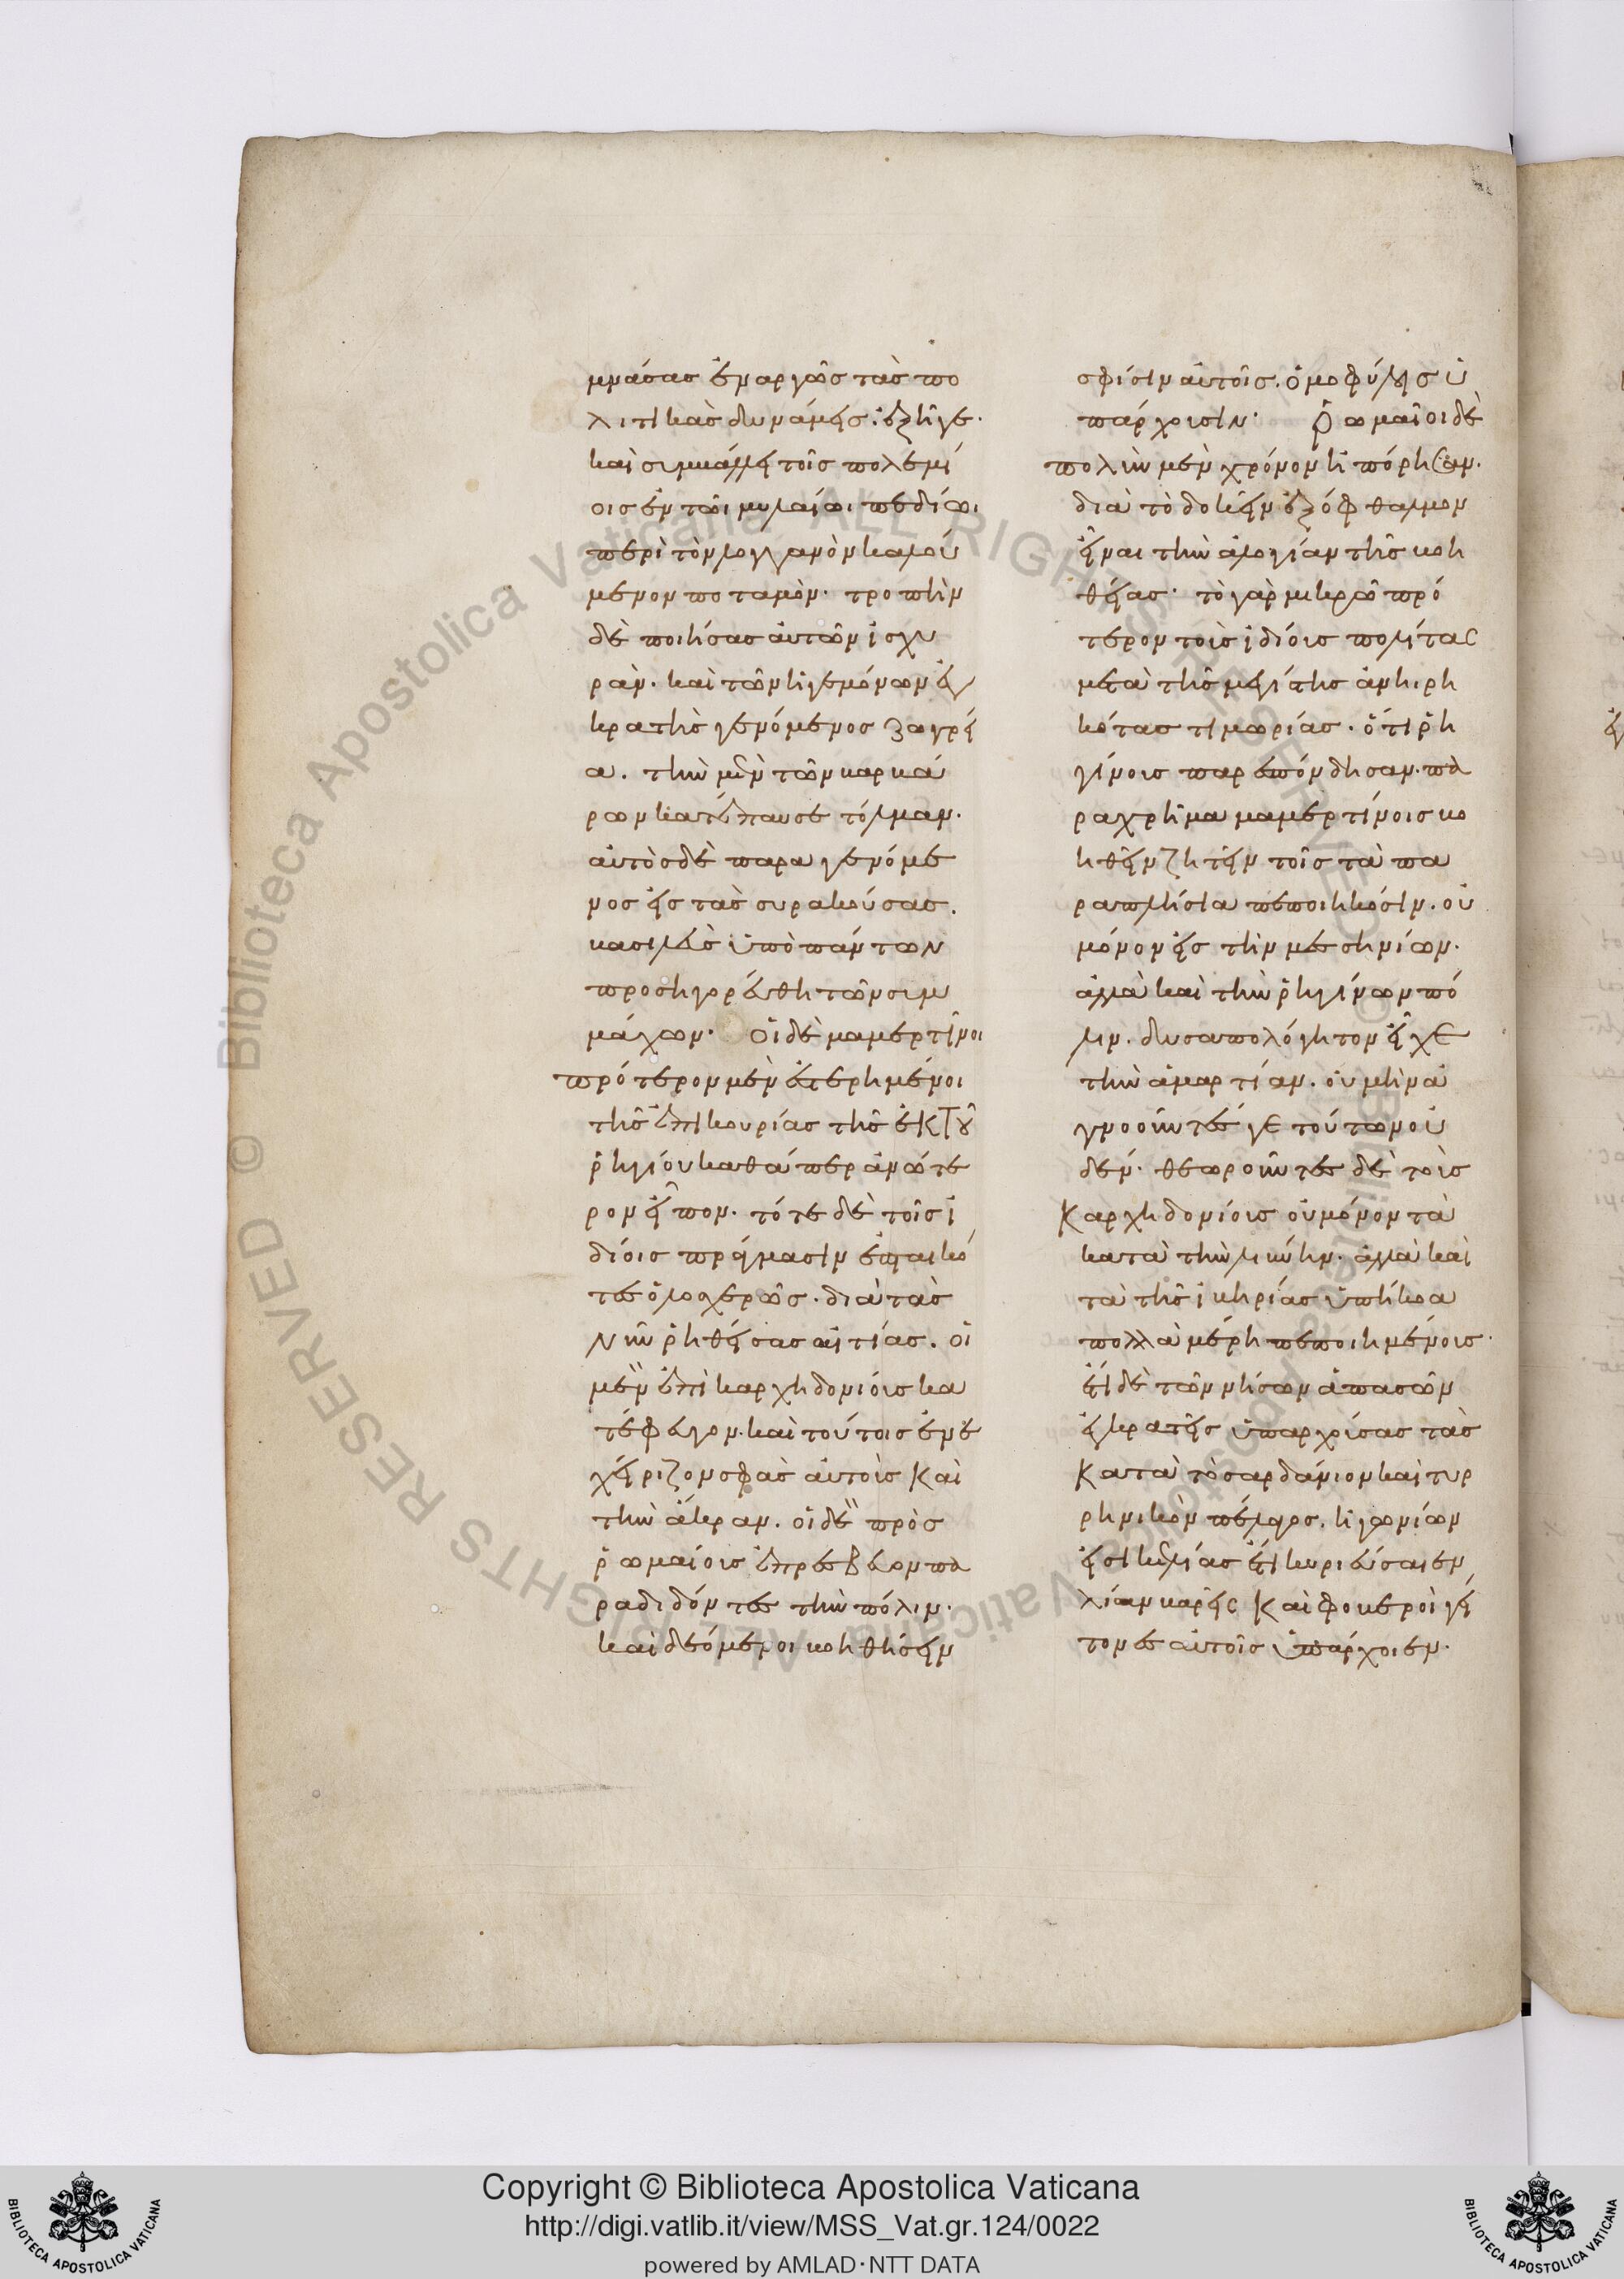 μνάσας ἐναργῶς τὰς πο
λιτικὰς δυνάμεις. ἐξῆγε.
καὶ συμβάλλει τοῖς πολεμί
οις ἐν τῶι μυλαίωι πεδίωι
περὶ τὸν λογγανὸν καλού
μενον ποταμόν. τροπὴν
δὲ ποιήσας αὐτῶν ἰσχυ
ράν. καὶ τῶν ἡγεμόνων ἐγ
κρατὴς γενόμενος ζωγρεί
α. τὴν μὲν τῶν βαρβά
ρων κατέπαυσε τόλμαν.
αὐτὸς δὲ παραγενόμε
νος εἰς τὰς συρακούσας.
βασιλεὺς ὑπὸ πάντων
προσηγορεύθη τῶν συμ
μάχων. Οἱ δὲ μαμερτῖνοι
πρότερον μὲν ἐστερημένοι
τῆς ἐπικουρίας τῆς ἐκ τοῦ
ῥηγίου καθάπερ ἀνώτε
ρον εἶπον. τότε δὲ τοῖς ἰ
δίοις πράγμασιν ἐπταικό
τες ὁλοχερῶς. διὰ τὰς
νῦν ῥηθείσας αἰτίας. οἱ
μὲν ἐπὶ καρχηδονίους κα
τέφευγον. καὶ τούτοις ἐνε
χείριζον σφᾶς αὐτοὺς καὶ
τὴν ἄκραν. οἱ δὲ πρὸς
ῥωμαίους ἐπρέσβευον πα
ραδιδόντες τὴν πόλιν.
καὶ δεόμενοι βοηθήσειν
σφίσιν αὐτοῖς. ὁμοφύλοις ὑ
πάρχουσιν. Ῥωμαῖοι δὲ
πολὺν μὲν χρόνον ἠπόρησαν.
διὰ τὸ δοκεῖν ἐξόφθαλμον
εἶναι τὴν ἀλογίαν τῆς βοη
θείας. τὸ γὰρ μικρῶ πρό
τερον τοὺς ἰδίους πολίτας
μετὰ τῆς μεγίστης ἀνηρη
κότας τιμωρίας. ὅτι ῥη
γίνους παρεσπόνδησαν. πα
ραχρῆμα μαμερτίνοις βο
ηθεῖν ζητεῖν τοῖς τὰ πα
ραπλήσια πεποιηκόσιν. οὐ
μόνον εἰς τὴν μεσσηνίων.
ἀλλὰ καὶ τὴν ῥηγίνων πό
λιν. δυσαπολόγητον εἶχε
τὴν ἁμαρτίαν. οὐ μὴν ἀ
γνοοῦντές γε τούτων οὐ
δέν. θεωροῦντες δὲ τοὺς
Καρχηδονίους οὐ μόνον τὰ
κατὰ τὴν λιβύην. ἀλλὰ καὶ
τὰ τῆς ἰβηρίας ὑπήκοα
πολλὰ μέρη πεποιημένους.
ἔτι δὲ τῶν νήσων ἁπασῶν
ἐγκρατεῖς ὑπάρχοντας τὰς
Κατὰ τὸ σαρδάνιον καὶ τυρ
ρηνικὸν πέλαγος. ἠγωνίων
εἰ σικελίας ἔτι κυριεύσαιεν
λίαν βαρεῖς καὶ φοβεροὶ γεί
τονες αὐτοῖς ὑπάρχοιεν.
Copyright © Biblioteca Apostolica Vaticana
http://digi.vatlib.it/view/MSS_Vat.gr.124/0022
powered by AMLAD·NTT DATA